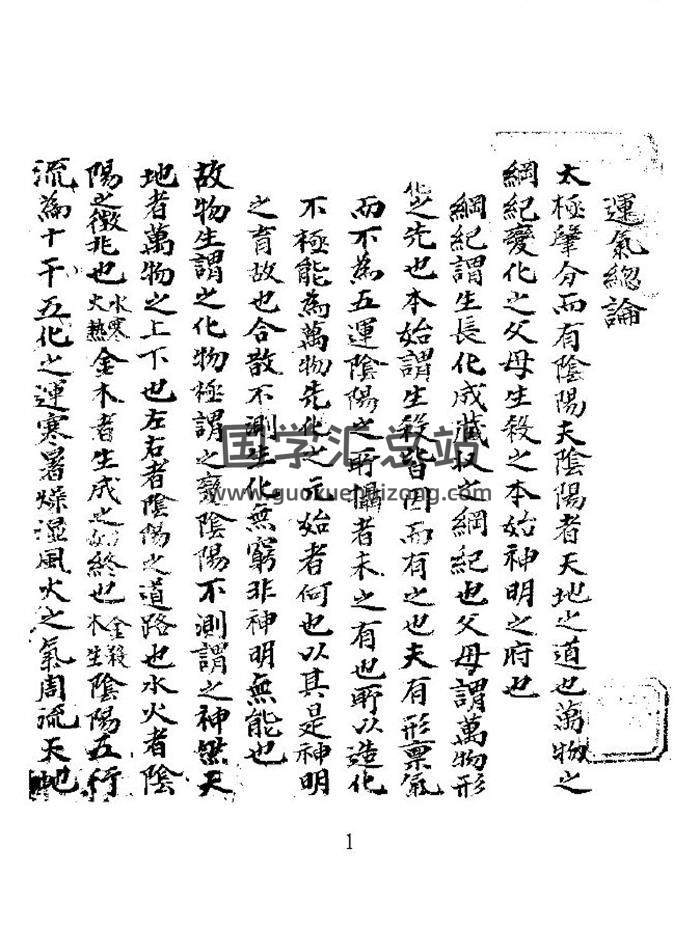 運氣總論
太極肇分而有陰陽夫陰陽者天地之道也萬物之
綱紀變化之父母生殺之本始神明之府也
綱紀謂生長化成藏收之綱紀也父母謂萬物形
化之先也本始謂生殺皆因而有之也夫有形禀氣
而不為五運陰陽之所攝者未之有也所以造化
不極能為萬物先化之元始者何也以其是神明
之育故也合散不測生化無窮非神明無能也
故物生謂之化物極謂之變陰陽不測謂之神然天
地者萬物之上下也左右者陰陽之道路也水火者陰
陽之徵兆也水寒火熱金木者生成之始終也金殺木生陰陽五行
流為十干五化之運寒暑燥湿風火之氣周流天地
国学汇总站
www.guoxuehuizong.com
1